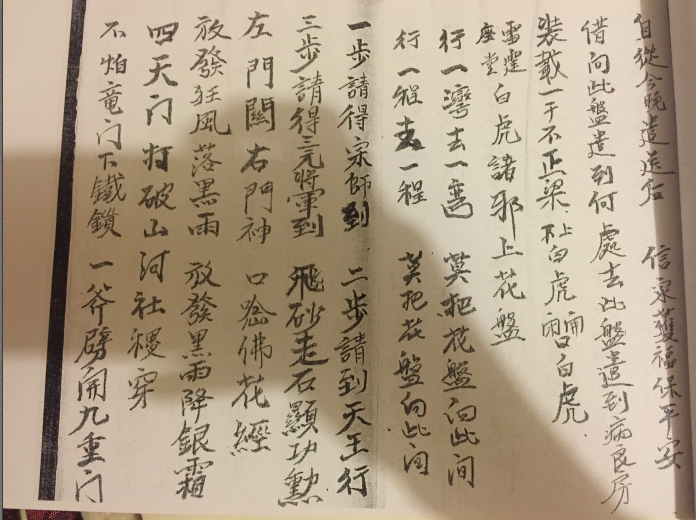 自從今晚遣送后 信家獲福保平安
借问此盤遣到何處去此盤遣到病良房
装載一千不正梁 白虎 開口白虎
座堂白虎諸邪上花盤
行一灣去一湾 莫把花盤向此间
行一程去一程 莫把花盤向此间
一步請得宗師到 二步請到天王行
三步請得三元將軍到 飛砂走石顯功勲
左門關右門神 口唸佛花經
放發狂風落黑雨 放發黑雨降銀霜
四天门打破山河社稷穿
不怕竜门下鐵鎖 一斧劈開九重门